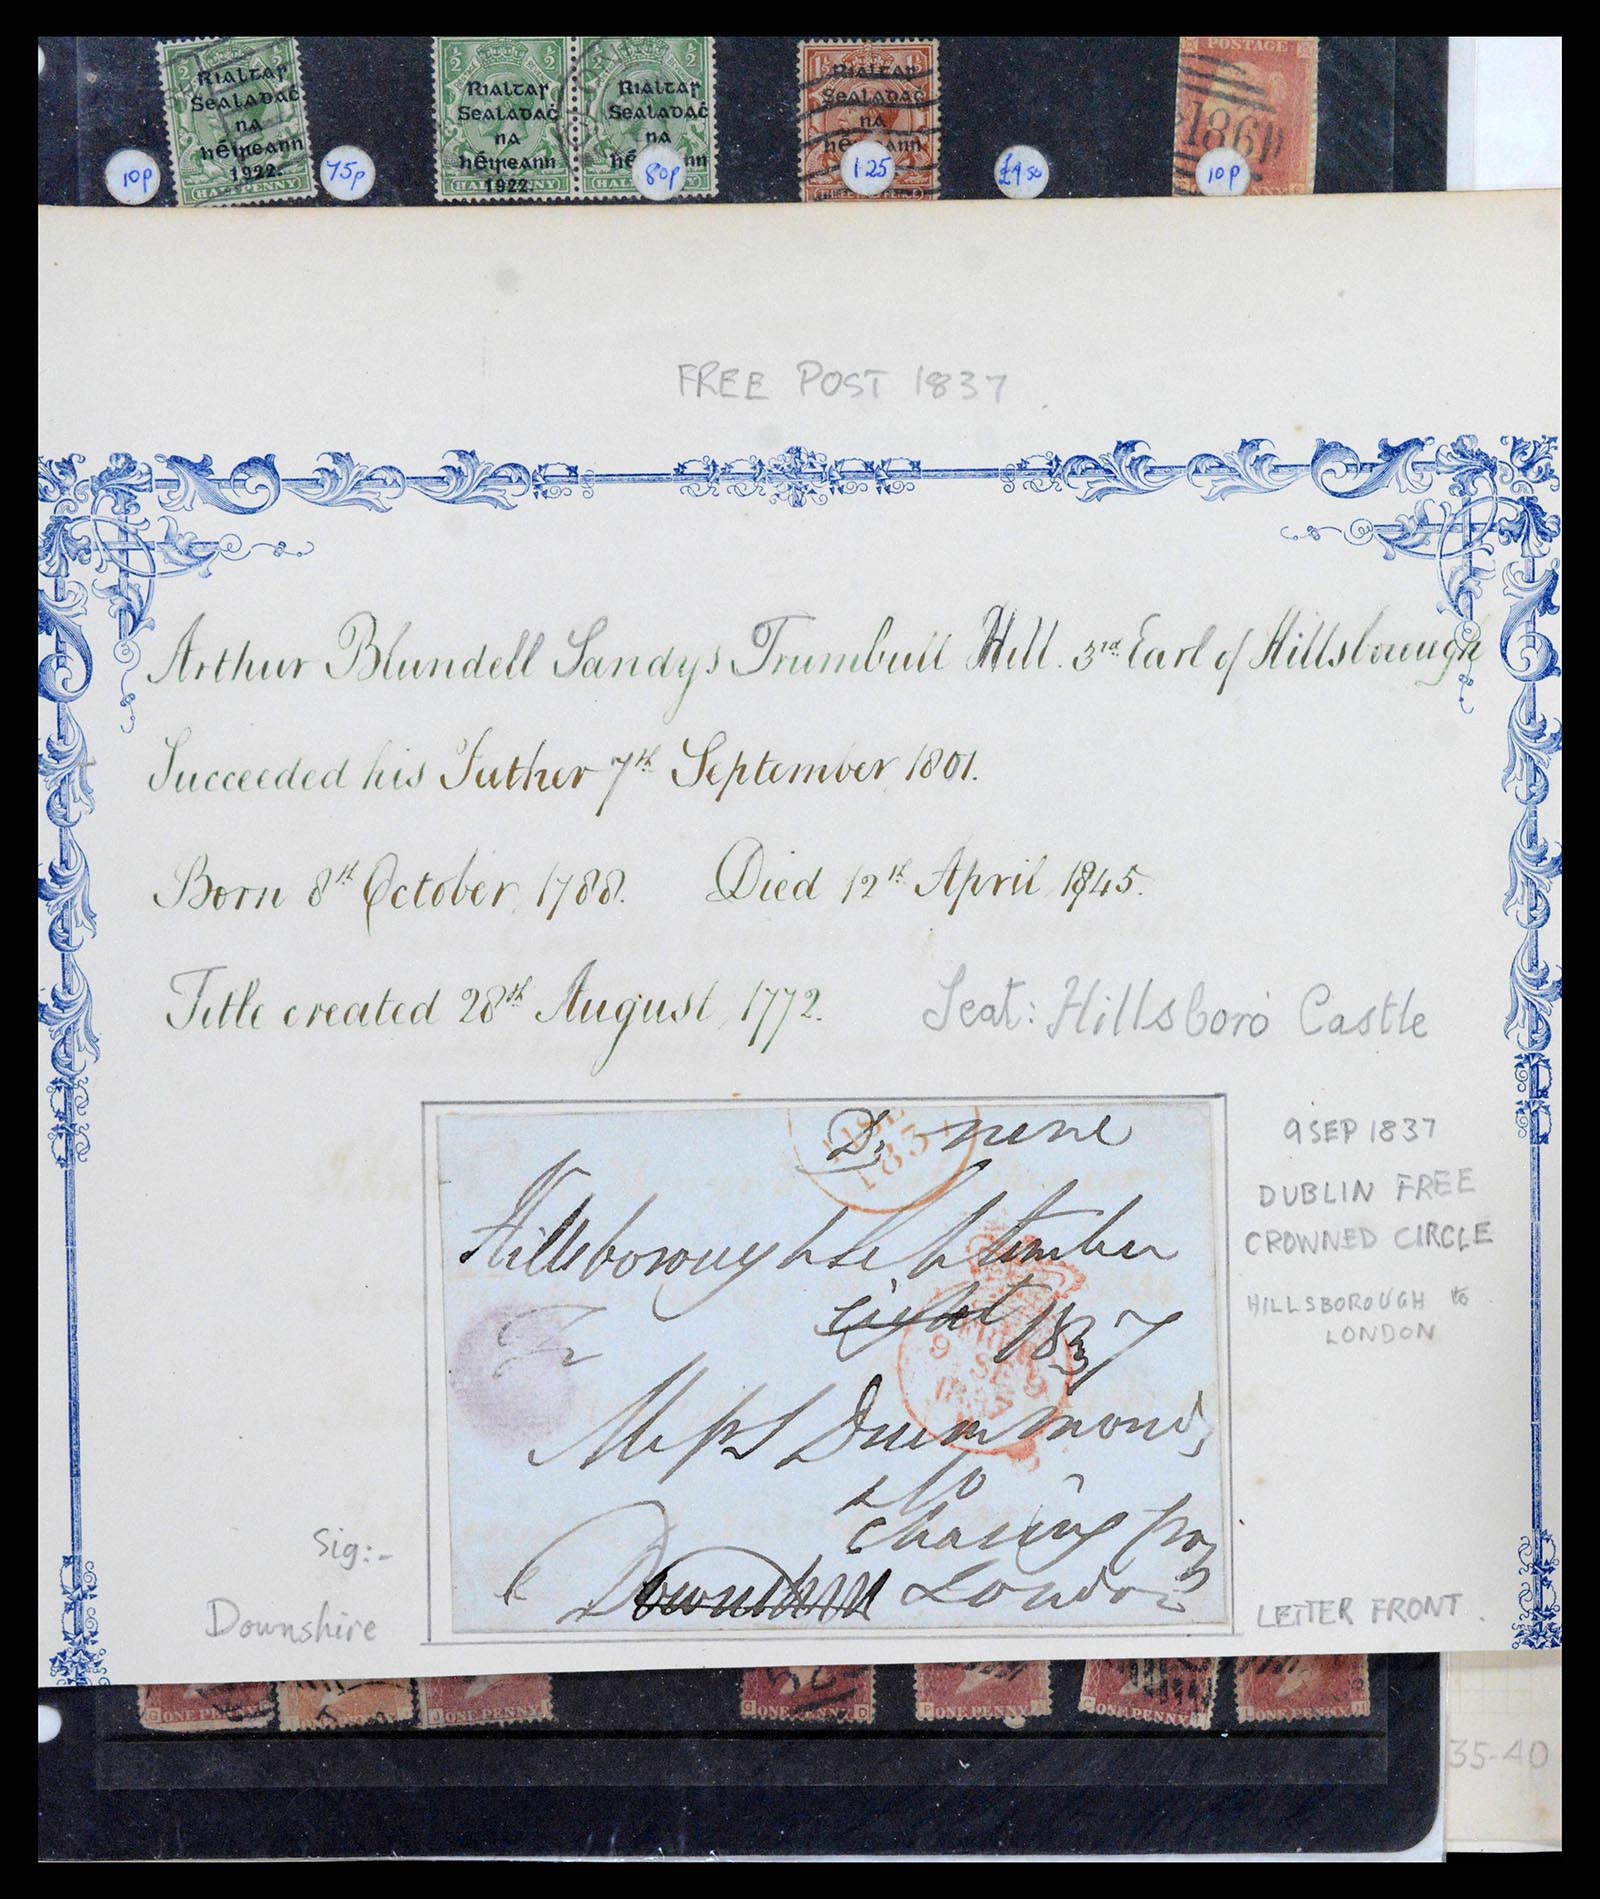 Rialtas
Sealadaċ
na
hÉireann
1922.
HALFPENNY
Rialtas
Sealadaċ
na
hÉireann
1922.
HALFPENNY
Rialtas
Sealadaċ
na
Rialtas
Sealadaċ
na
POSTAGE
186
10p
75p
80p
1.25
£4.50
10p
FREE POST 1837
Arthur Blundell Sandys Trumbull Hill. 3rd Earl of Hillsborough
Succeeded his Father 7th September, 1801.
Born 8th October, 1788. Died 12th April, 1845.
Title created 28th August, 1772. Seat: Hillsboro' Castle
nine
Hillsborough September
eight 1837
Messrs Drummonds
Charing Cross
Downshire London
9 SEP 1837
DUBLIN FREE
CROWNED CIRCLE
HILLSBOROUGH to
LONDON
Sig:-
Downshire
LETTER FRONT.
G ONE PENNY
J ONE PENNY
G ONE PENNY D
P ONE PENNY
ONE PENNY
L ONE PENNY
35-40